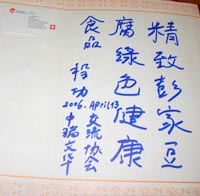 精致彭家豆
腐綠色健康
食品
2006.April13
中瑞文华
交流协会